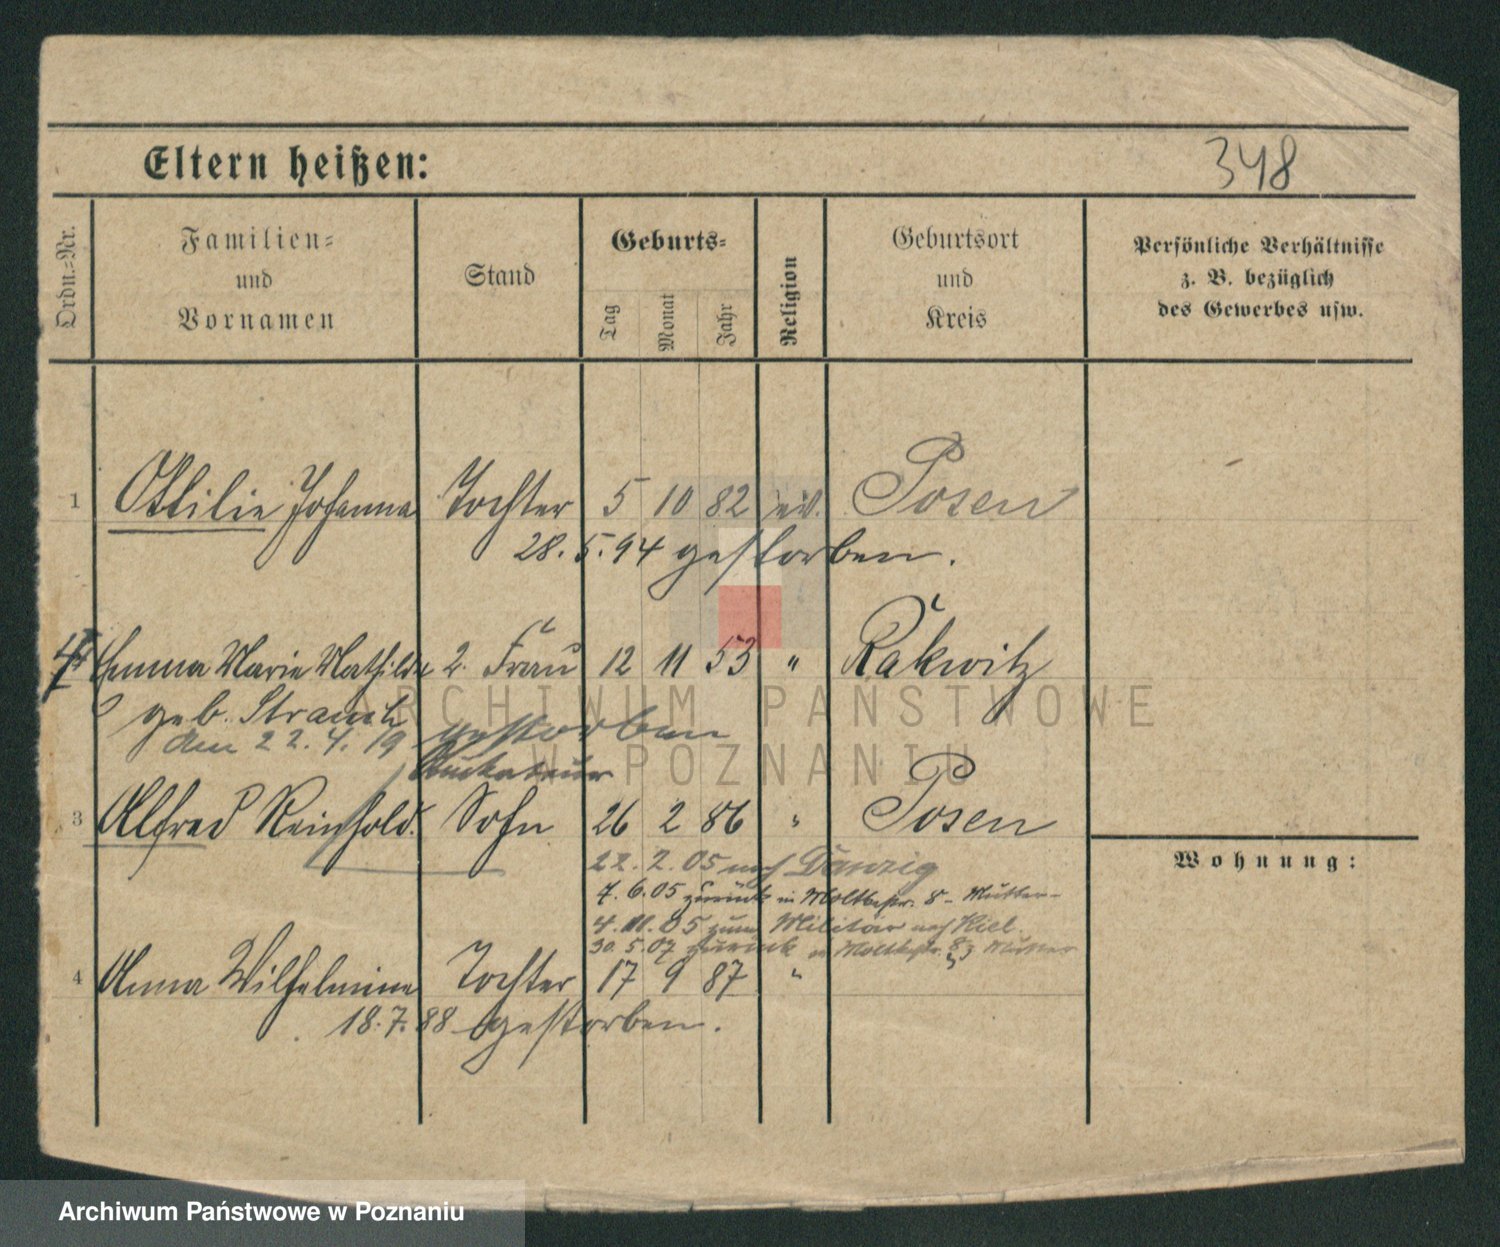 Eltern heißen:
348
Ordn.=Nr.
Familien=
und
Vornamen
Stand
Geburts=
Tag
Monat
Jahr
Religion
Geburtsort
und
Kreis
Persönliche Verhältnisse
z. B. bezüglich
des Gewerbes usw.
1 Ottilie Johanna Tochter 5 10 82 ev. Posen
28. 5. 94 gestorben.
Emma Marie Mathilde 2. Frau 12 11 53 " Rakwitz
geb. Strauch
den 22. 4. 19 gestorben
ARCHIWUM PAŃSTWOWE
W POZNANIU
Stuckateur
3 Alfred Reinhold. Sohn 26 2 86 " Posen
22. 2. 05 nach Danzig
7. 6. 05 zurück in Moltkestr. 8 - Mutter -
4. 11. 05 zum Militär nach Kiel.
30. 5. 07 zurück in Moltkestr. 8 Mutter
4 Anna Wilhelmine Tochter 17 9 87 "
18. 7. 88 gestorben.
Wohnung:
Archiwum Państwowe w Poznaniu